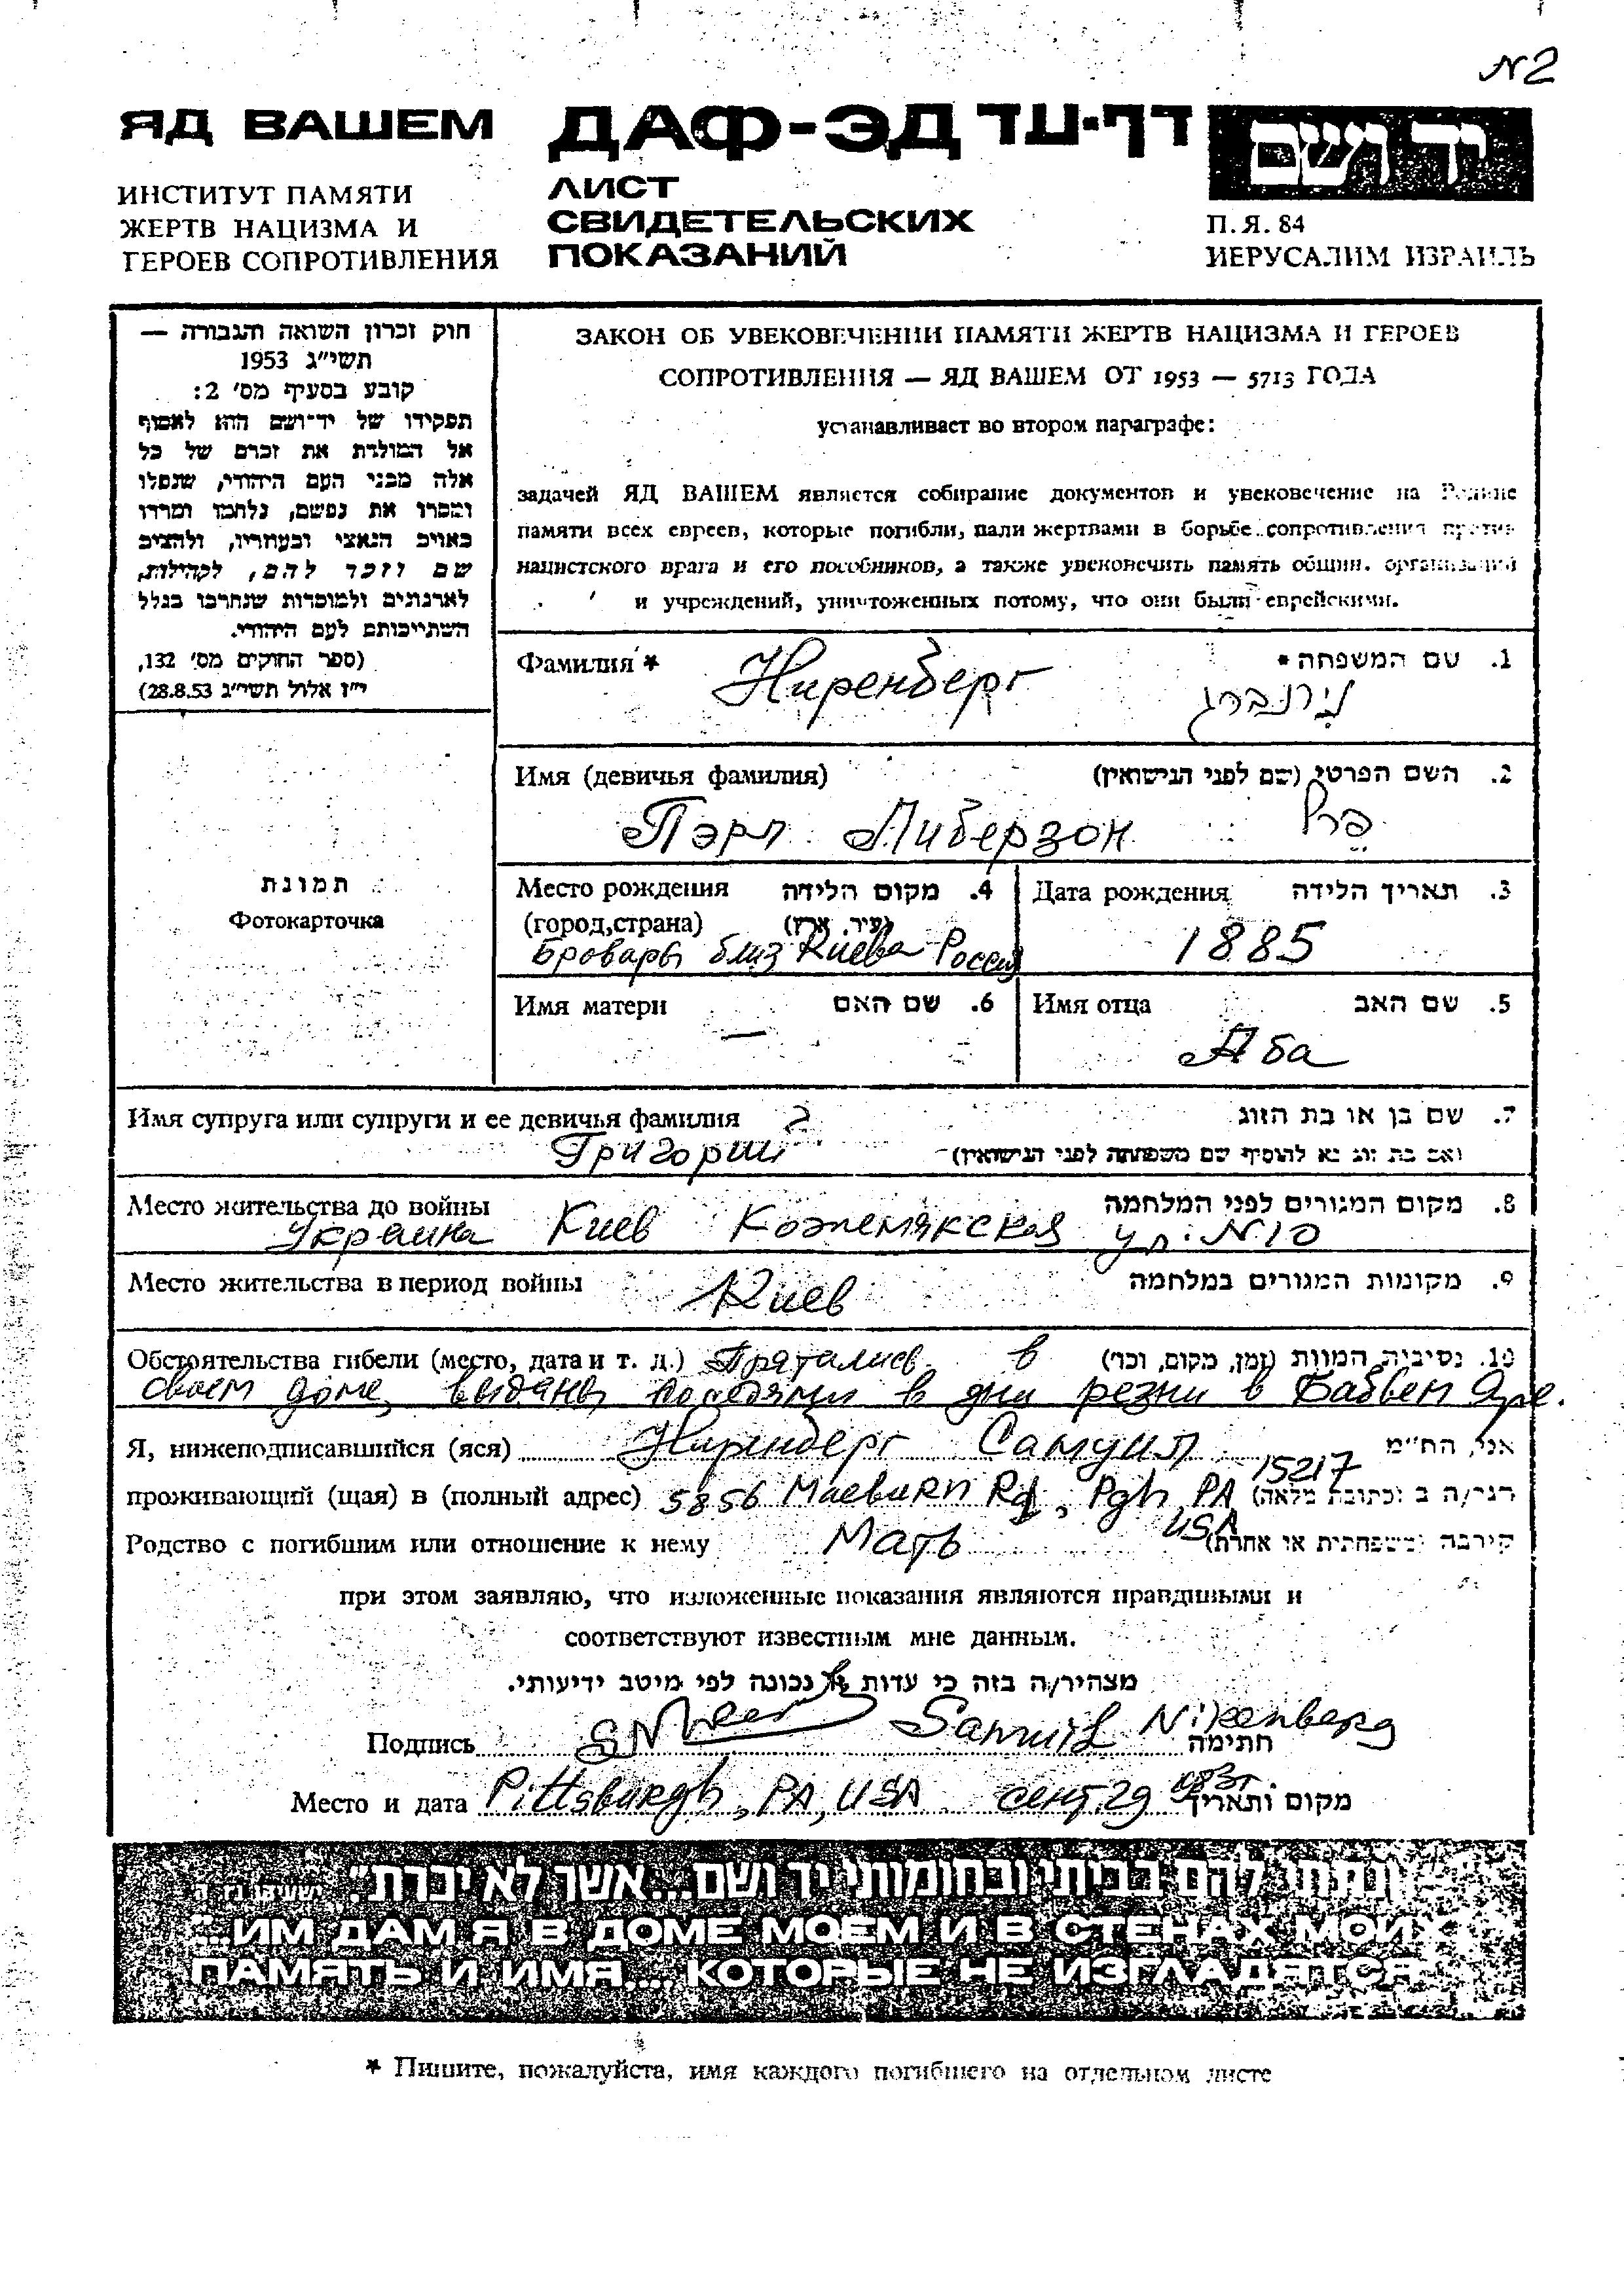 N2
ЯД ВАШЕМ
ДАФ-ЭД דף-עד
יד ושם
ИНСТИТУТ ПАМЯТИ
ЖЕРТВ НАЦИЗМА И
ГЕРОЕВ СОПРОТИВЛЕНИЯ
ЛИСТ
СВИДЕТЕЛЬСКИХ
ПОКАЗАНИЙ
П.Я. 84
ИЕРУСАЛИМ ИЗРАИЛЬ
חוק זכרון השואה והגבורה —
תשי"ג 1953
קובע בסעיף מס' 2:
תפקידו של יד-ושם הוא לאסוף
אל המולדת את זכרם של כל
אלה מבני העם היהודי, שנפלו
ומסרו את נפשם, נלחמו ומרדו
באויב הנאצי ובעוזריו, ולהציב
שם וזכר להם, לקהילות,
לארגונים ולמוסדות שנחרבו בגלל
השתייכותם לעם היהודי.
(ספר החוקים מס' 132,
י"ז אלול תשי"ג 28.8.53)
ЗАКОН ОБ УВЕКОВЕЧЕНИИ ПАМЯТИ ЖЕРТВ НАЦИЗМА И ГЕРОЕВ
СОПРОТИВЛЕНИЯ — ЯД ВАШЕМ ОТ 1953 — 5713 ГОДА
устанавливает во втором параграфе:
задачей ЯД ВАШЕМ является собирание документов и увековечение на Родине
памяти всех евреев, которые погибли, пали жертвами в борьбе сопротивления против
нацистского врага и его пособников, а также увековечить память общин, организаций
и учреждений, уничтоженных потому, что они были еврейскими.
Фамилия * Ниренберг 1. שם המשפחה *
נירנברג
Имя (девичья фамилия) 2. השם הפרטי (שם לפני הנישואין)
Пэрл Либерзон פרל
תמונה
Фотокарточка
Место рождения 4. מקום הלידה
(город,страна) (עיר, ארץ)
Бровары близ Киева Россия
Дата рождения 3. תאריך הלידה
1885
Имя матери 6. שם האם
—
Имя отца 5. שם האב
Аба
Имя супруга или супруги и ее девичья фамилия ? 7. שם בן או בת הזוג
Григорий (אם בת זוג נא להוסיף שם משפחתה לפני הנישואין)
Место жительства до войны 8. מקום המגורים לפני המלחמה
Украина Киев Кожемякская ул. N10
Место жительства в период войны Киев 9. מקומות המגורים במלחמה
Обстоятельства гибели (место, дата и т. д.) Прятались в 10. נסיבות המוות (זמן, מקום, וכו')
своем доме, выданы соседями в дни резни в Бабьем Яре.
Я, нижеподписавшийся (яся) Ниренберг Самуил אני, הח"מ
проживающий (щая) в (полный адрес) 5856 Maeburn Rd, Pgh, PA 15217 הגר/ה ב (כתובת מלאה)
USA
Родство с погибшим или отношение к нему Мать קירבה (משפחתית או אחרת)
при этом заявляю, что изложенные показания являются правдивыми и
соответствуют известным мне данным.
מצהיר/ה בזה כי עדות זו נכונה לפי מיטב ידיעותי.
Подпись Samuil Nirenberg חתימה
Место и дата Pittsburgh, PA, USA сент. 29 1983г. מקום ותאריך
"ונתתי להם בביתי ובחומותי יד ושם...אשר לא יכרת". ישעיהו נו, ה
"...ИМ ДАМ Я В ДОМЕ МОЕМ И В СТЕНАХ МОИХ
ПАМЯТЬ И ИМЯ.... КОТОРЫЕ НЕ ИЗГЛАДЯТСЯ"
* Пишите, пожалуйста, имя каждого погибшего на отдельном листе